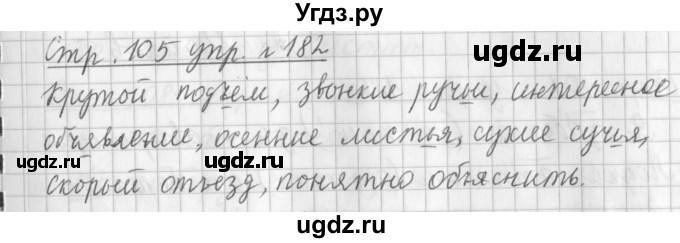 Угдз.ру
Стр. 105 упр. г 182
uгдz.ru
Крутой подъём, звонкие ручьи, интересное
объявление, осенние листья, сухие сучья,
uгдz.ru
uгдz.ru
скорый отъезд, понятно объяснить.
uгдz.ru